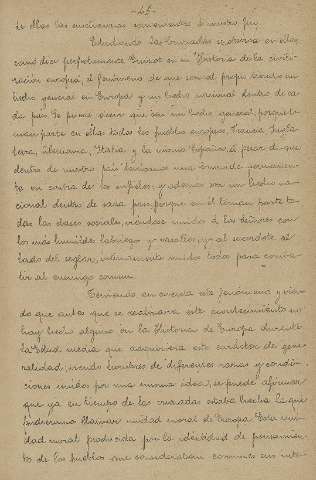 -45-
de ellas las encaminadas
Estudiando las Cruzadas, se observa en ellas,
como dice perfectamente Guizot en su Historia de la civili-
zación europea, el fenómeno de que son al propio tiempo un
hecho general en Europa y un hecho nacional dentro de ca-
da país. Se puede decir que son un hecho general, porque to-
man parte en ellas todos los pueblos europeos, Francia, Ingla-
terra, Alemania, Italia y la misma España, á pesar de que
dentro de nuestro país teníamos una cruzada permanen-
te en contra de los infieles; y además son un hecho na-
cional dentro de cada país, porque en él toman parte to-
das las clases sociales, viéndose unidos á los señores con
los más humildes labriegos y vasallos, y al sacerdote al
lado del seglar, íntimamente unidos todos para comba-
tir al enemigo común.
Teniendo en cuenta este fenómeno y vien-
do que antes que se realizara este acontecimiento no
hay hecho alguno en la Historia de Europa durante
la Edad media que adquiriera este carácter de gene-
ralidad, viendo hombres de diferentes razas y condi-
ciones unidos por una misma idea, se puede afirmar
que ya en tiempo de las cruzadas estaba hecha la que
pudiéramos llamar unidad moral de Europa. Esta uni-
dad moral producida por la identidad de pensamien-
to de los pueblos que consideraban comunes sus inte-